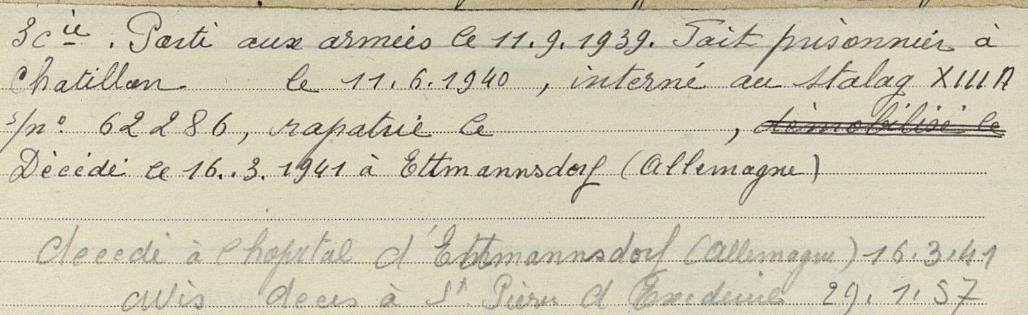 3cie. Parti aux armées le 11.9.1939. Fait prisonnier à
Chatillon le 11.6.1940, interné au stalag XIII A
s/n° 62286, rapatrié le , démobilisé le
Décédé le 16.3.1941 à Ettmannsdorf (Allemagne)
décédé à l'hopital d'Ettmannsdorf (Allemagne) 16.3.41
avis deces à St. Pierre d'Exideuil 29.1.57